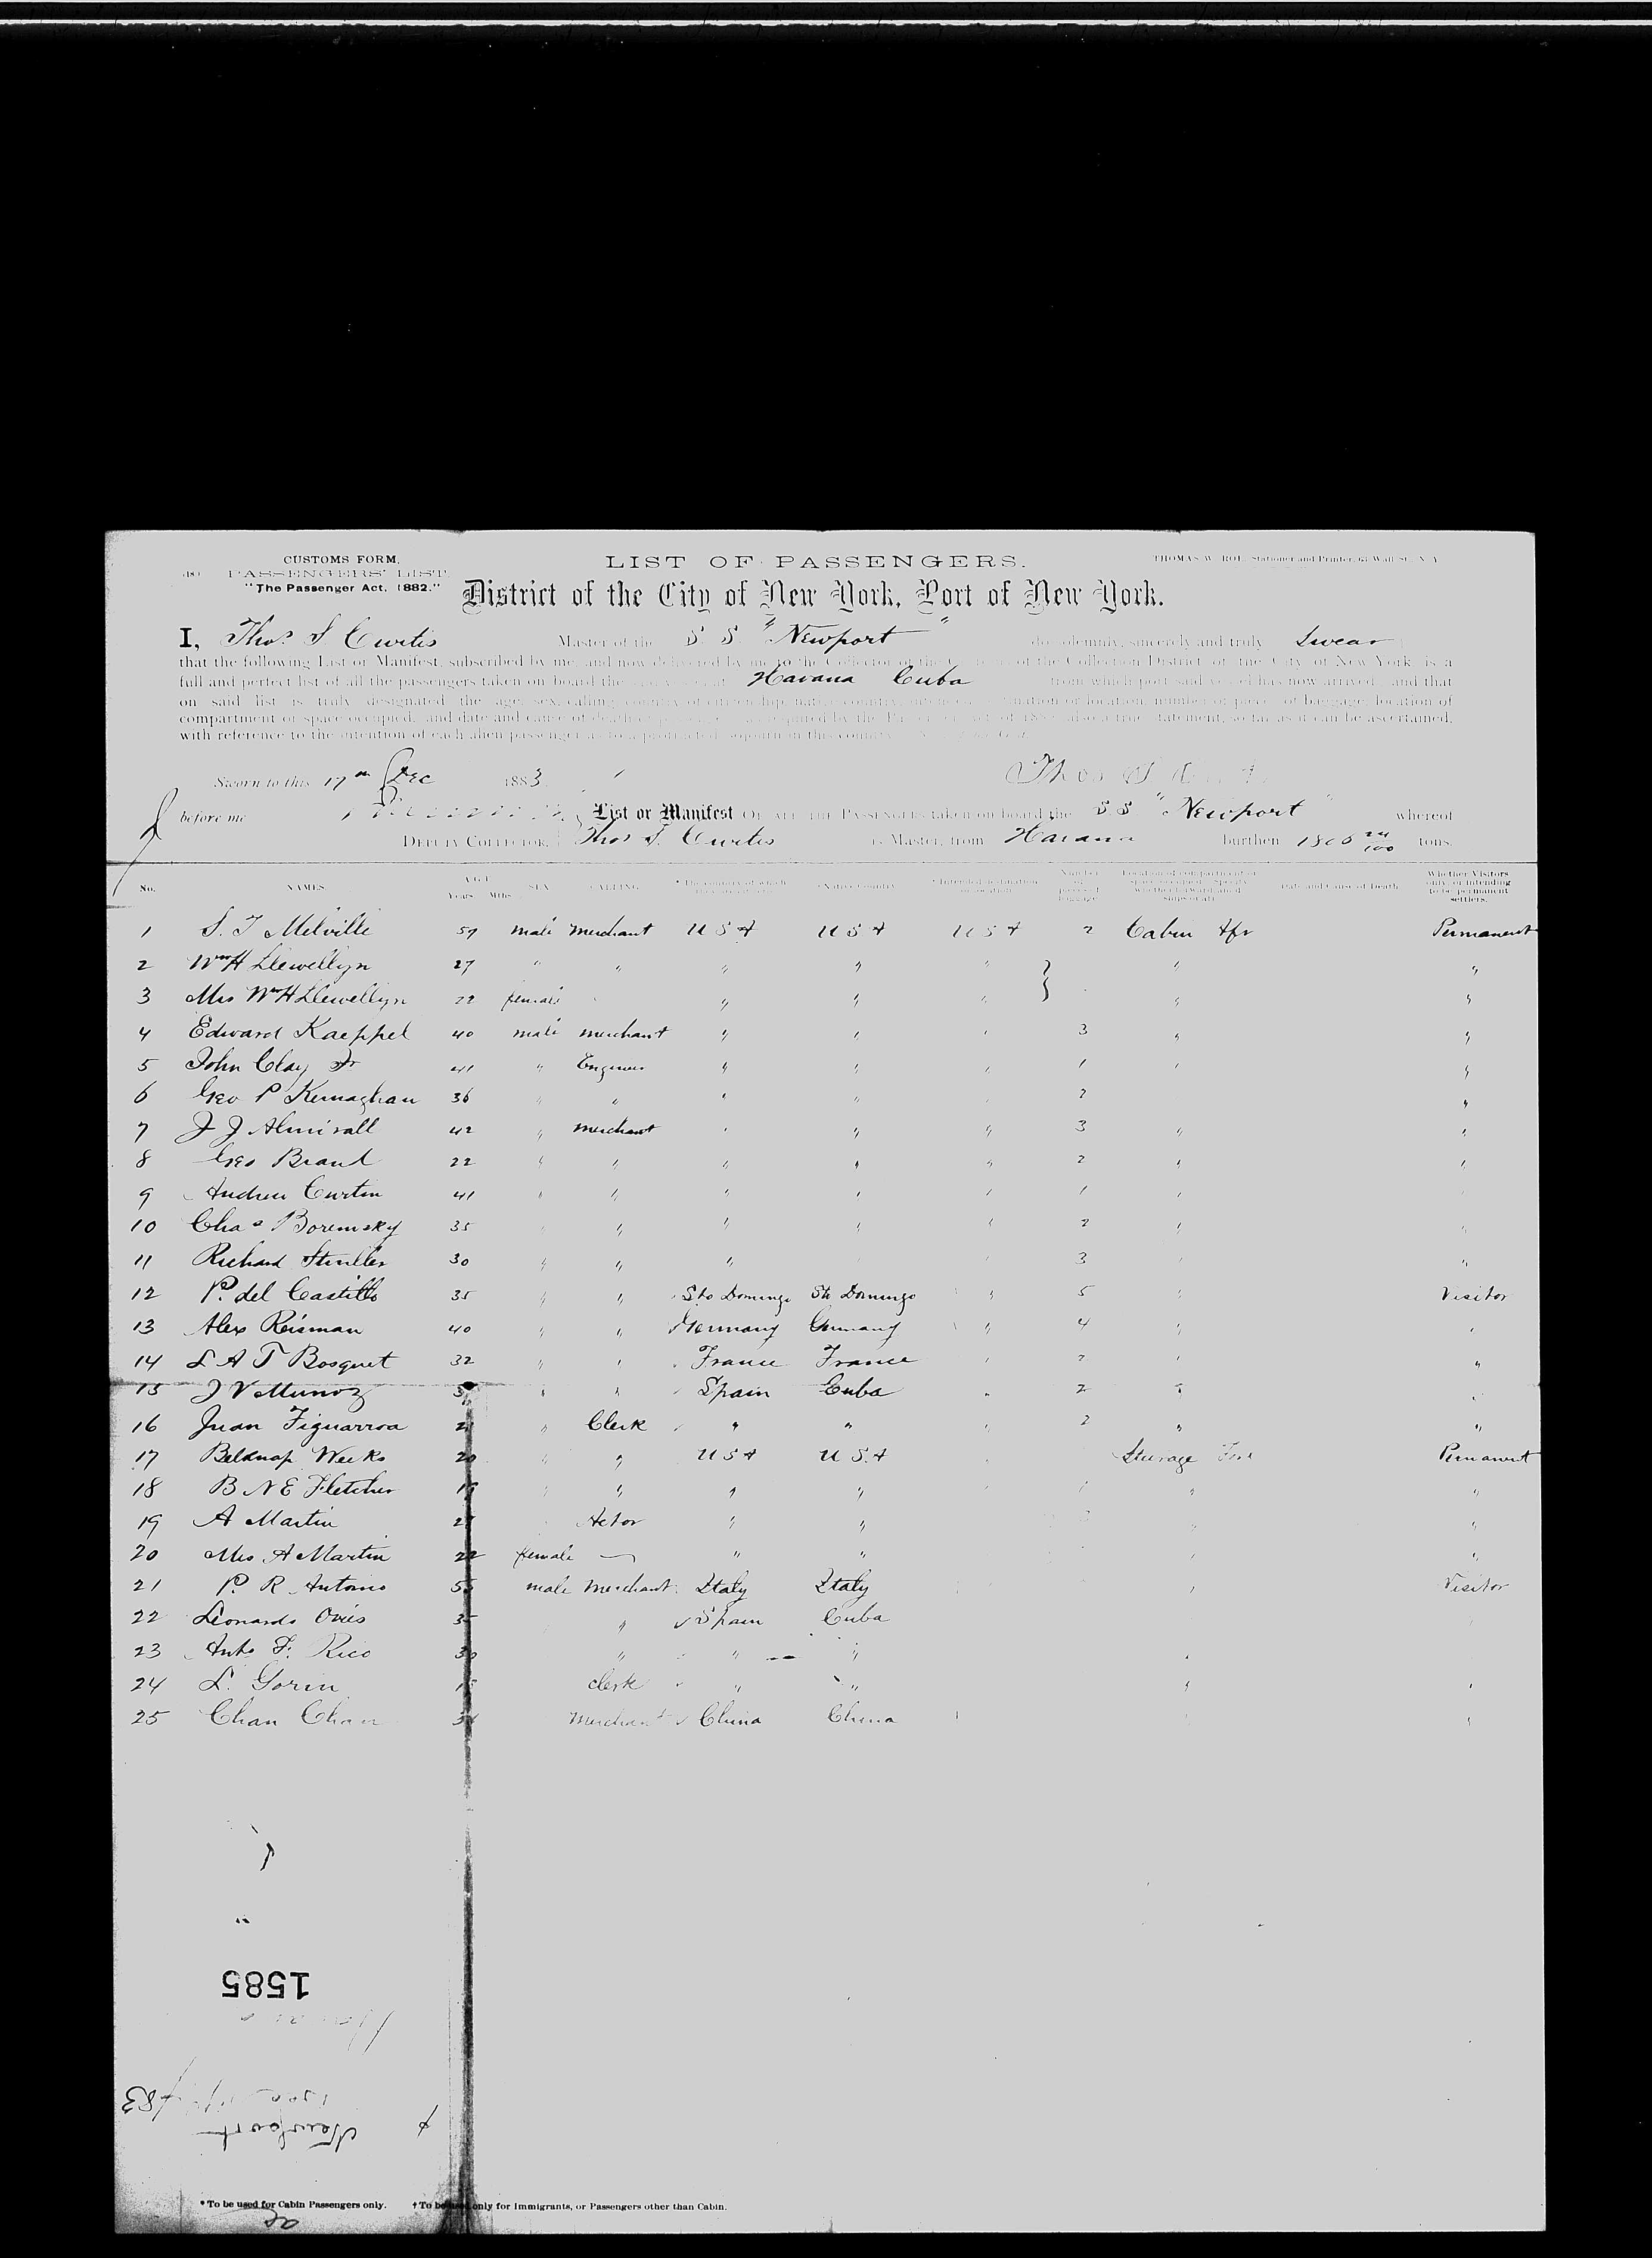 CUSTOMS FORM, LIST OF PASSENGERS. THOMAS W. ROE, Stationer and Printer, 63 Wall St. N.Y.
PASSENGERS' LIST.
"The Passenger Act, 1882." District of the City of New York, Port of New York.
I, Thos S Curtis Master of the S S "Newport" do solemnly, sincerely and truly Swear
that the following List or Manifest, subscribed by me, and now delivered by me to the Collector of the Customs of the Collection District of the City of New York is a
full and perfect list of all the passengers taken on board the Havana Cuba from which port said vessel has now arrived; and that
on said list is truly designated the age, sex, calling, country of citizenship, native country, location, number of pieces of baggage, location of
compartment or space occupied, and date and cause of death required by the also a true statement, so far as it can be ascertained,
with reference to the intention of each alien passenger as to a protracted sojourn in this country
Sworn to this 17th Dec 1883 Thos S
before me List or Manifest OF ALL THE PASSENGERS taken on board the S S "Newport" whereof
DEPUTY COLLECTOR. Thos S. Curtis is Master, from Havana burthen 1806 tons.
No. NAMES. AGE Years. Mths. SEX CALLING Native Country Date and Cause of Death Whether Visitors only, or intending to be permanent settlers.
1 S. T Melville 59 male merchant U S A U S A U S A 2 Cabin Aft Permanent
2 Wm H Llewellyn 27 " " " " " " "
3 Mrs Wm H Llewellyn 22 female " " " " "
4 Edward Kaeppel 40 male merchant " " " 3 " "
5 John Clay Jr 41 " Engineer " " " 1 " "
6 Geo P Kernaghan 36 " " " " " 2 "
7 J J Almirall 42 " merchant " " " 3 " "
8 Geo Brand 22 " " " " " 2 " "
9 Andrew Curtin 41 " " " " " 1 " "
10 Chas Boremsky 35 " " " " " 2 " "
11 Richard 30 " " " " 3 " "
12 P. del Castillo 35 " " Sto Domingo Sto Domingo " 5 " Visitor
13 Alex Reisman 40 " " Germany Germany " 4 " "
14 L A T Bosquet 32 " " France France " 2 " "
15 J V Munoz " " Spain Cuba " 2 " "
16 Juan Figuarroa " Clerk " " " 2 " "
17 Belknap Weeks 20 " " U S A U S A Steerage Fore Permanent
18 B N E Fletcher " " " " " "
19 A Martin Actor " " " "
20 Mrs A Martin 22 female — " " " "
21 P. R. Antonio 55 male Merchant Italy Italy " Visitor
22 Leonardo Ovies 35 " Spain Cuba
23 Anto F. Rico 30 " " " "
24 L. Gorin clerk " " " "
25 Chan Chan Merchant China China "
1585
Havana
Newport
* To be used for Cabin Passengers only. † To be used only for Immigrants, or Passengers other than Cabin.